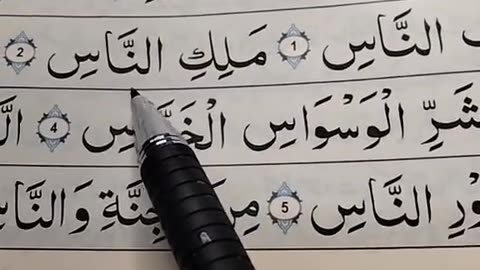 النَّاسِ 1 مَلِكِ النَّاسِ 2
شَرِّ الْوَسْوَاسِ الْخَنَّاسِ 4
النَّاسِ 5 مِنَ الْجِنَّةِ وَالنَّاسِ